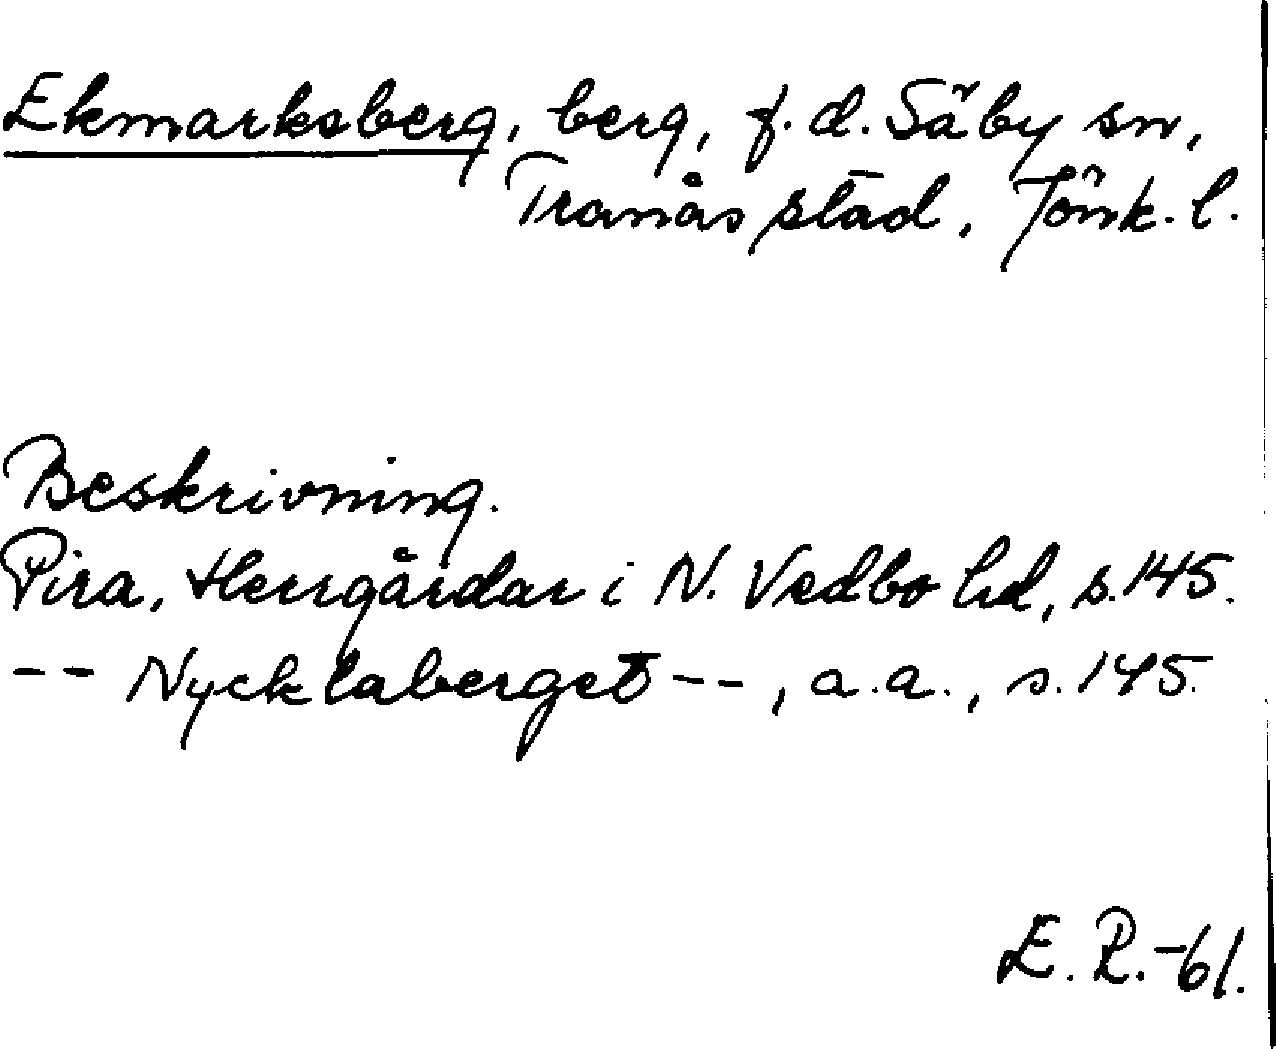 Ekmarksberg, berg, f.d. Säby sn,
Tranås stad, Jönk. l.
Beskrivning.
Pira, Herrgårdar i N. Vedbo hd, s. 145.
-- Nycklaberget --, a.a., s. 145.
E. R. -61.